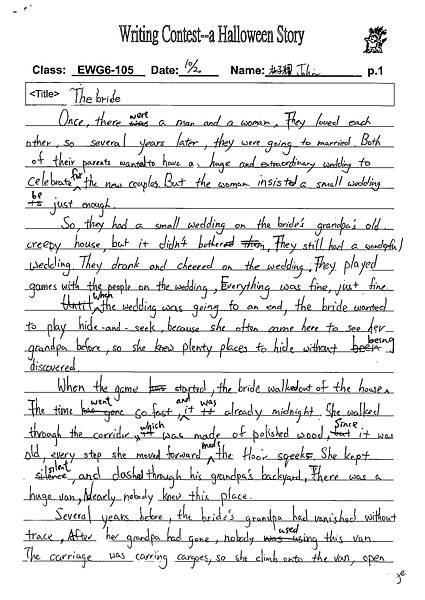 Writing Contest--a Halloween Story
Class: EWG6-105 Date: 10/20 Name: John p.1
<Title> The bride
Once, there were a man and a woman, They loved each
other, so several years later, they were going to married. Both
of their parents wanted to have a huge and extraordinary wedding to
celebrate for the new couples. But the woman insisted a small wedding
be just enough.
So, they had a small wedding on the bride's grandpa's old
creepy house, but it didn't bothered them, They still had a wonderful
wedding. They drank and cheered on the wedding, They played
games with the people on the wedding, Everything was fine, just fine.
Until when the wedding was going to an end, the bride wanted
to play hide-and-seek, because she often came here to see her
grandpa before, so she knew plenty places to hide without being
discovered.
When the game started, the bride walked out of the house.
The time went so fast, and it was already midnight. She walked
through the corridor, which was made of polished wood, Since it was
old, every step she moved forward made the floor speeks. She kept
silent, and dashed through his grandpa's backyard, There was a
huge van, Nearly nobody knew this place.
Several years before, the bride's grandpa had vanished without
trace, After her grandpa had gone, nobody used using this van.
The carriage was carring cargoes, so she climb onto the van, open